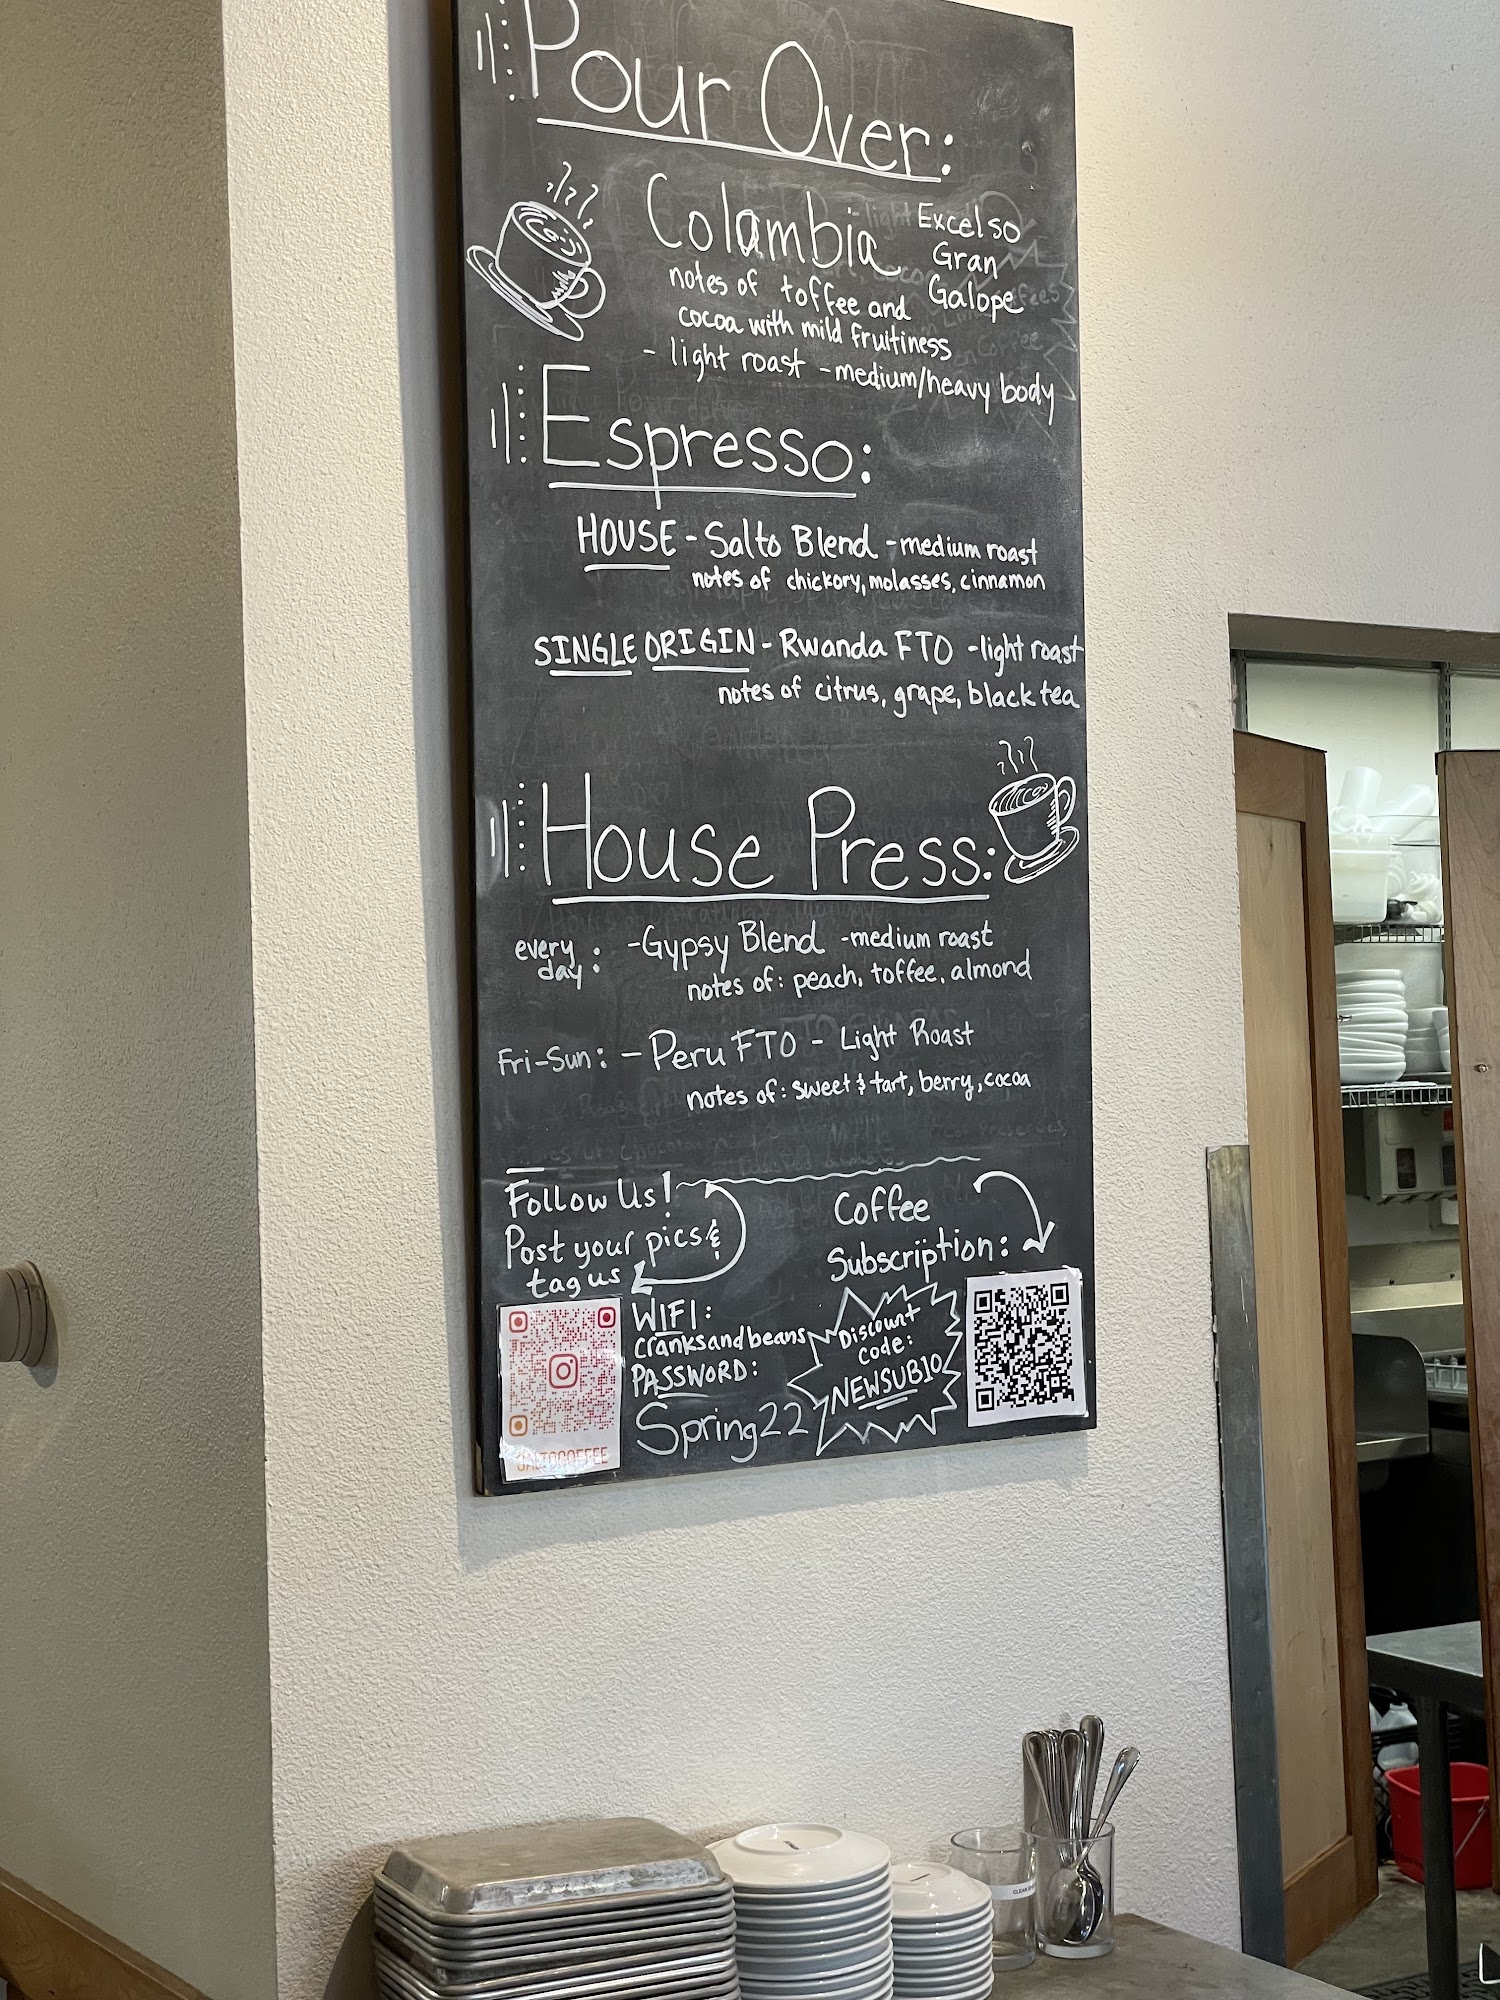 Pour Over:
Colambia
Excelso
Gran
Galope
notes of toffee and
cocoa with mild fruitiness
- light roast - medium/heavy body
Espresso:
HOUSE - Salto Blend - medium roast
notes of chickory, molasses, cinnamon
SINGLE ORIGIN - Rwanda FTO - light roast
notes of citrus, grape, black tea
House Press:
every day: - Gypsy Blend - medium roast
notes of: peach, toffee, almond
Fri-Sun: - Peru FTO - Light Roast
notes of: sweet & tart, berry, cocoa
Follow Us!
Post your pics &
tag us
Coffee
Subscription:
WIFI:
cranksandbeans
PASSWORD:
Spring22
Discount
code:
NEWSUB10
SALTOCOFFEE